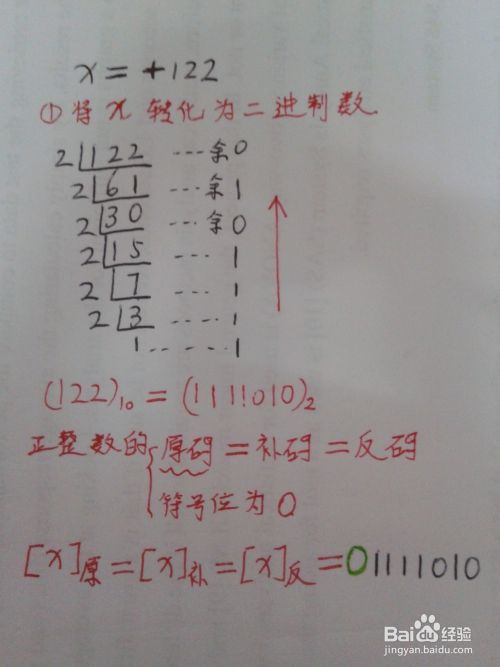 x = +122
① 将 x 转化为二进制数
2 122 ··· 余0
2 61 ··· 余1
2 30 ··· 余0
2 15 ··· 1
2 7 ··· 1
2 3 ···· 1
1 ······ 1
(122)₁₀ = (1111010)₂
正整数的 原码 = 补码 = 反码
符号位为 0
[x]原 = [x]补 = [x]反 = 01111010
Baidu经验
jingyan.baidu.com